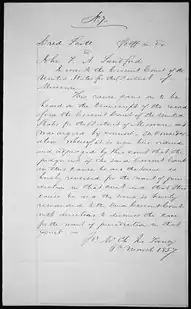 No 7
Dred Scott Plff in Er
vs
John F. A. Sandford
In error to the Circuit Court of the
United States for the District of
Missouri
This cause came on to be
heard on the transcript of the record
from the Circuit Court of the United
States for the District of Missouri and
was argued by counsel. On consideration
whereof it is now here ordered
and adjudged by this court that the
judgment of the said Circuit Court
in this cause be and the same is
hereby reversed for the want of jurisdiction
in that court and that this
cause be and the same is hereby
remanded to the said Circuit Court
with directions to dismiss the case
for the want of jurisdiction in that
Court
Pr Mr Ch Js Taney
6th March 1857